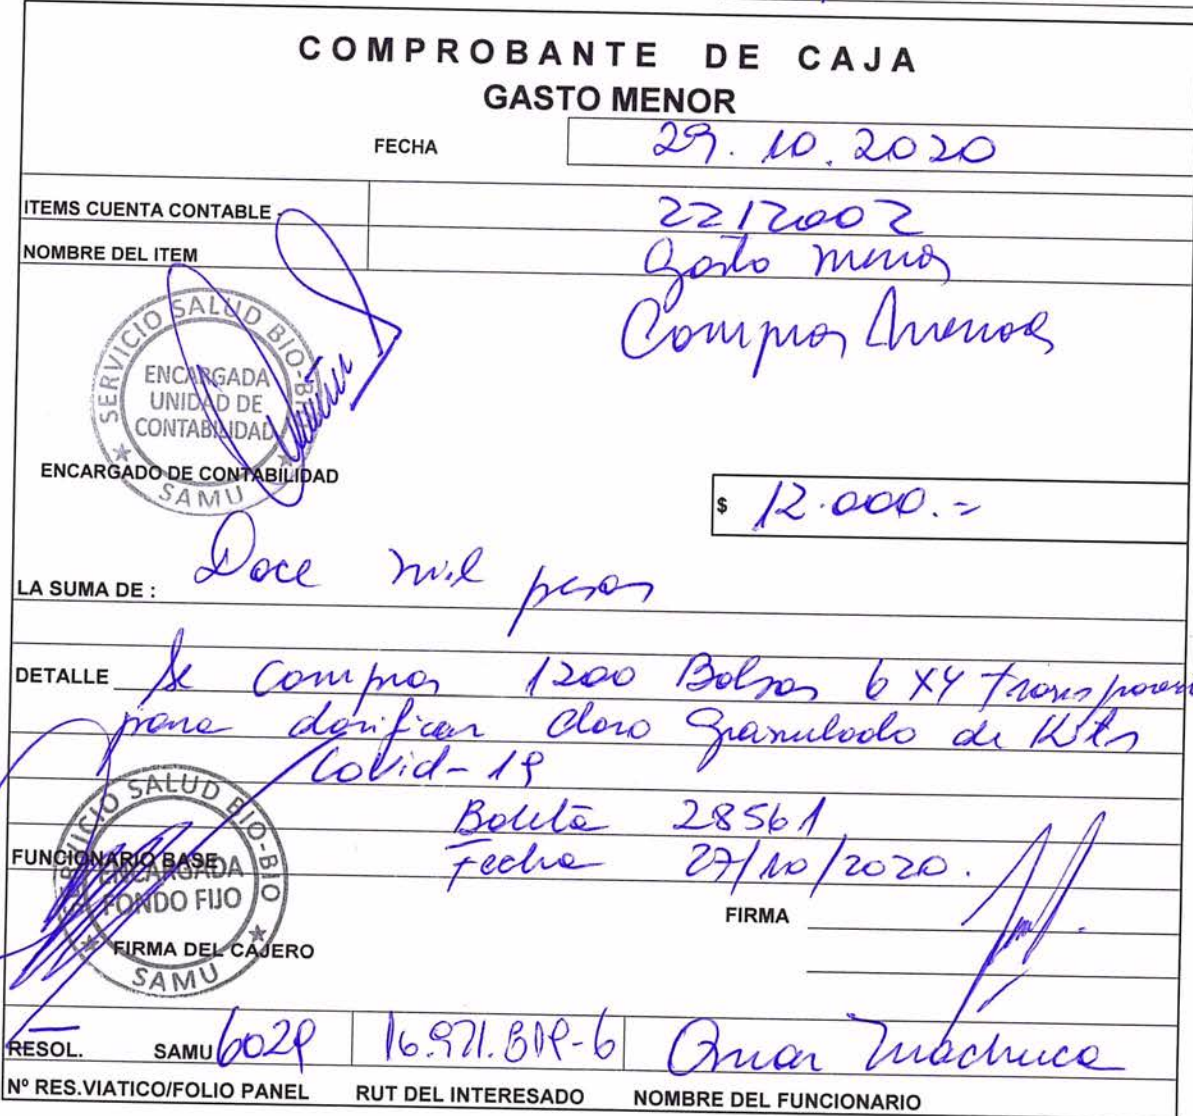 COMPROBANTE DE CAJA
GASTO MENOR
FECHA 29.10.2020
ITEMS CUENTA CONTABLE 2212002
NOMBRE DEL ITEM Gasto menor
Compras Menores
SERVICIO SALUD BIO-BIO
ENCARGADA
UNIDAD DE
CONTABILIDAD
SAMU
ENCARGADO DE CONTABILIDAD
$ 12.000.=
LA SUMA DE : Doce mil pesos
DETALLE Se compran 1200 Bolsas 6 x4 transparen
para dosificar cloro Granulado de Kits
Covid-19
Boleta 28561
Fecha 27/10/2020.
FUNCIONARIO BASE
SERVICIO SALUD BIO-BIO
ENCARGADA
FONDO FIJO
SAMU
FIRMA
FIRMA DEL CAJERO
RESOL. SAMU 6029 Omar Machuca
Nº RES.VIATICO/FOLIO PANEL RUT DEL INTERESADO NOMBRE DEL FUNCIONARIO